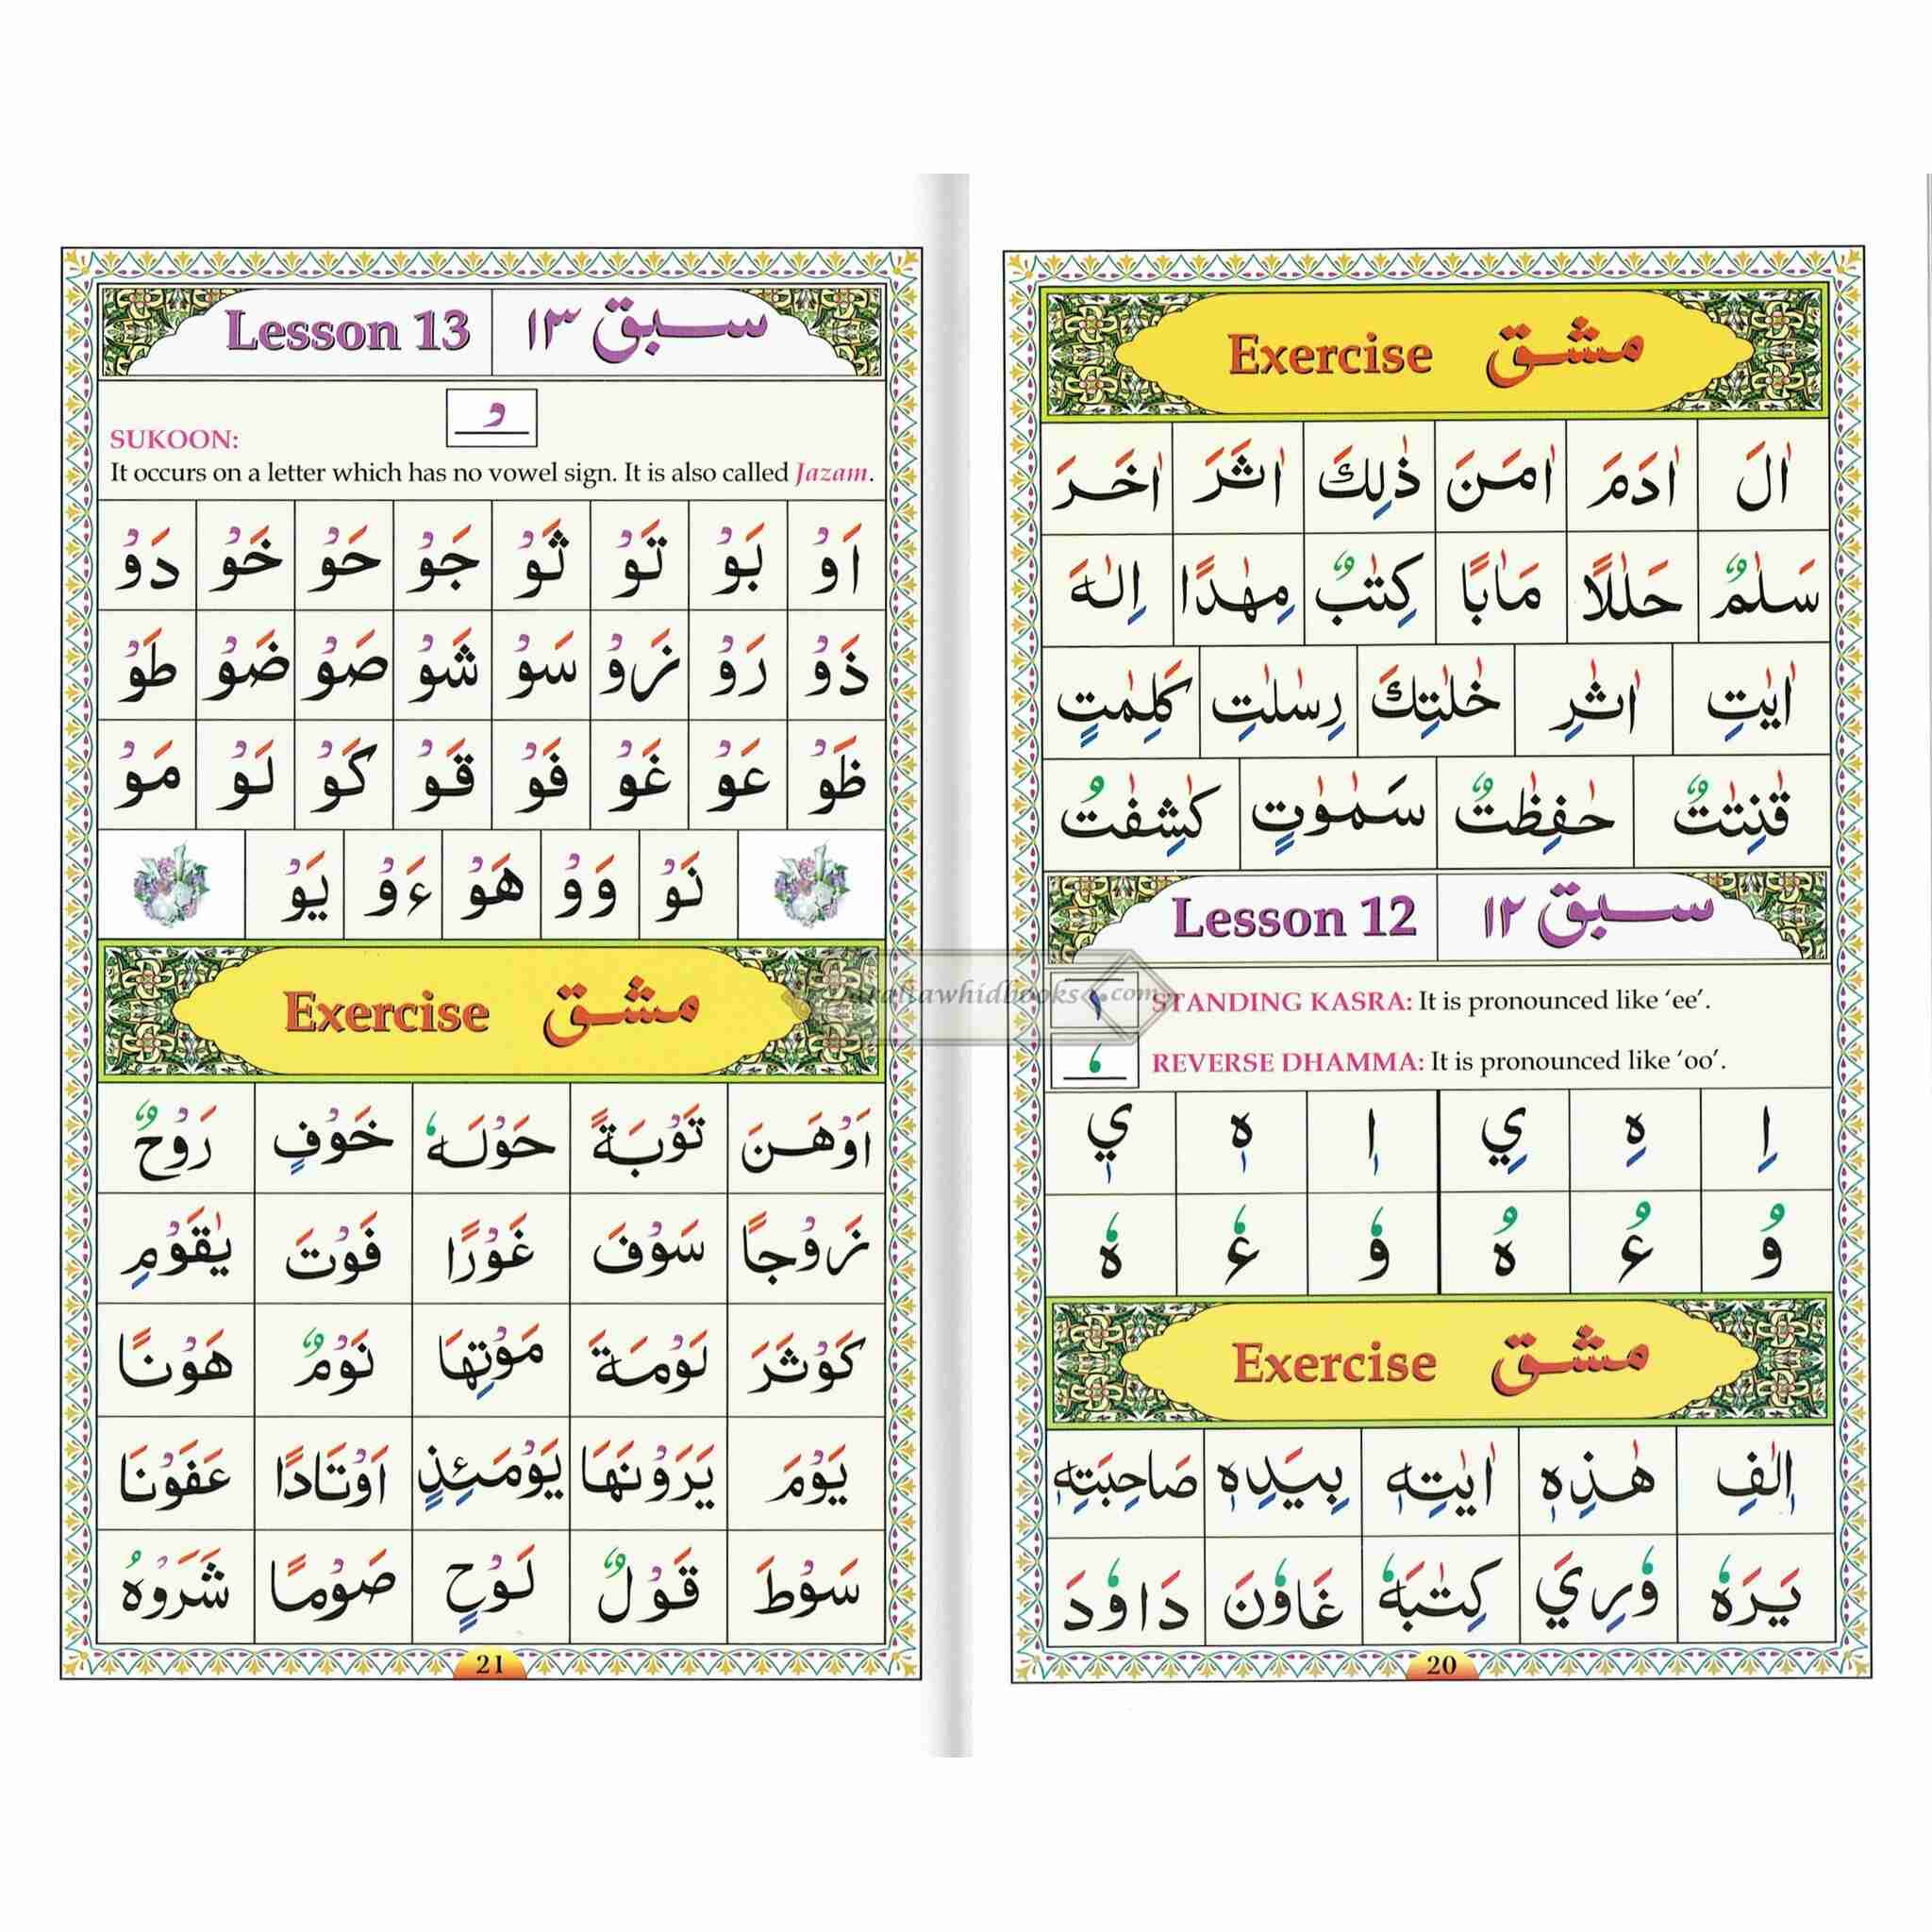 Exercise مشق
اٰلَ اٰدَمَ اٰمَنَ ذٰلِكَ اٰثَرَ اٰخَرَ
سَلٰمٌ حَلٰلًا مَاٰبًا كِتٰبٌ مِهٰدًا اِلٰهَ
اٰيٰتِ اٰثٰرِ خٰلٰتِكَ رِسٰلٰتِ كَلِمٰتٍ
قٰنِتٰتٌ حٰفِظٰتٌ سَمٰوٰتٍ كٰشِفٰتُ
Lesson 12 سبق ١٢
STANDING KASRA: It is pronounced like ‘ee’.
REVERSE DHAMMA: It is pronounced like ‘oo’.
اِ هِ يِ اٖ هٖ يٖ
وُ ءُ هُ وٗ ءٗ هٗ
Exercise مشق
اٖلٰفِ هٰذِهٖ اٰيٰتِهٖ بِيَدِهٖ صَاحِبَتِهٖ
يَرَهٗ وٗرِيَ كِتٰبَهٗ غَاوٗنَ دَاوٗدَ
20
Lesson 13 سبق ١٣
SUKOON:
It occurs on a letter which has no vowel sign. It is also called Jazam.
اَوْ بَوْ تَوْ ثَوْ جَوْ حَوْ خَوْ دَوْ
ذَوْ رَوْ زَوْ سَوْ شَوْ صَوْ ضَوْ طَوْ
ظَوْ عَوْ غَوْ فَوْ قَوْ كَوْ لَوْ مَوْ
نَوْ وَوْ هَوْ ءَوْ يَوْ
Exercise مشق
اَوْهَنَ تَوْبَةً حَوْلَهٗ خَوْفٍ رَوْحٌ
زَوْجًا سَوْفَ غَوْرًا فَوْتَ يٰقَوْمِ
كَوْثَرَ لَوْمَةَ مَوْتِهَا نَوْمٌ هَوْنًا
يَوْمَ يَرَوْنَهَا يَوْمَئِذٍ اَوْتَادًا عَفَوْنَا
سَوْطَ قَوْلٌ لَوْحٍ صَوْمًا شَرَوْهُ
21